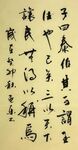 子曰泰伯其可謂至
德也已矣三以天下
讓民無得而稱焉